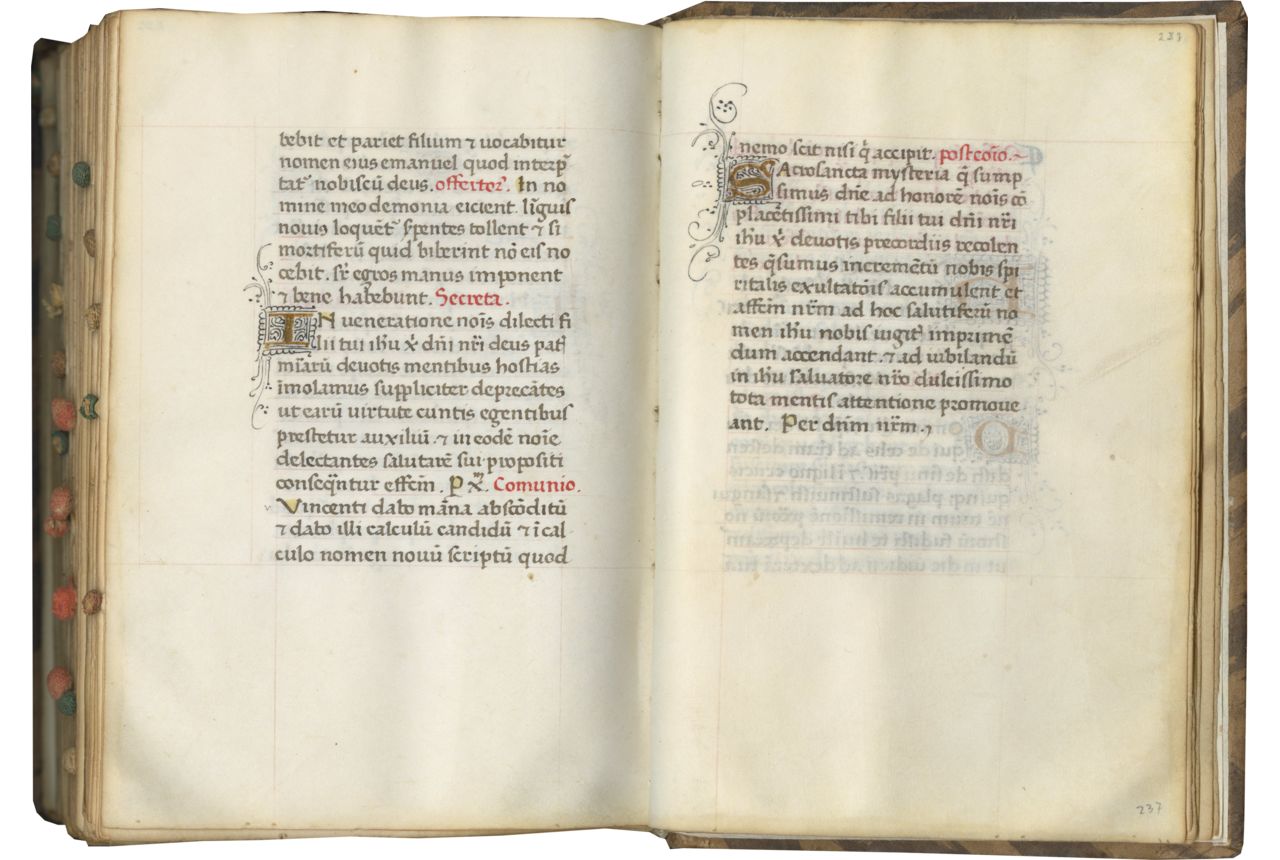 bebit et pariet filium ⁊ uocabitur
nomen eius emanuel quod interp̄
tat᷑ nobiscū deus. offertor᷑. In no
mine meo demonia eicient. līguis
nouis loquent᷑ sꝑentes tollent ⁊ si
mortiferū quid biberint nō eis no
cebit. sr̄ egros manus imponent
⁊ bene habebunt. Secreta.
IN ueneratione noīs dilecti fi
lii tui ihu x̄ dn̄i nr̄i deus pat᷑
mīarū deuotis mentibus hostias
īmolamus suppliciter deprecātes
ut earū uirtute cuntis egentibus
prestetur auxiliū. ⁊ in eodē noīe
delectantes salutarē sui propositi
conseqn̄tur effcm̄. P x̄. Comunio.
Vincenti dabo māna abscōditū
⁊ dabo illi calculū candidū ⁊ ī cal
culo nomen nouū scriptū quod
237
nemo scit nisi q̄ accipit. postcōio.
SAcrosancta mysteria q̄ sump
simus dn̄e ad honorē noīs cō
placētissimi tibi filii tui dn̄i nr̄i
ihu x̄ deuotis precordiis recolen
tes q̄sumus incremētū nobis spi
ritalis exultatōis accumulent et
affcm̄ nr̄m ad hoc salutiferū no
men ihu nobis iugit᷑ imprimē
dum accendant. ⁊ ad iubilandū
in ihu saluatore nr̄o dulcissimo
tota mentis attentione promoue
ant. Per dn̄m nr̄m.
237